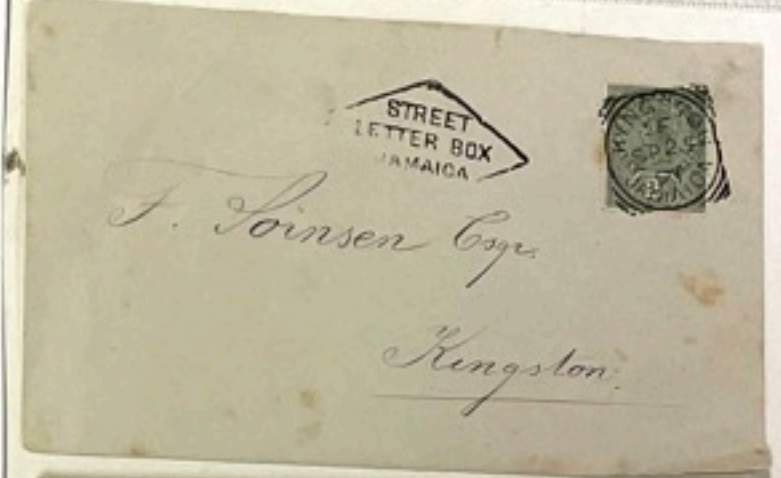 STREET
LETTER BOX
JAMAICA
KINGSTON
SP 25
JAMAICA
F. Soinsen Esqr.
Kingston.